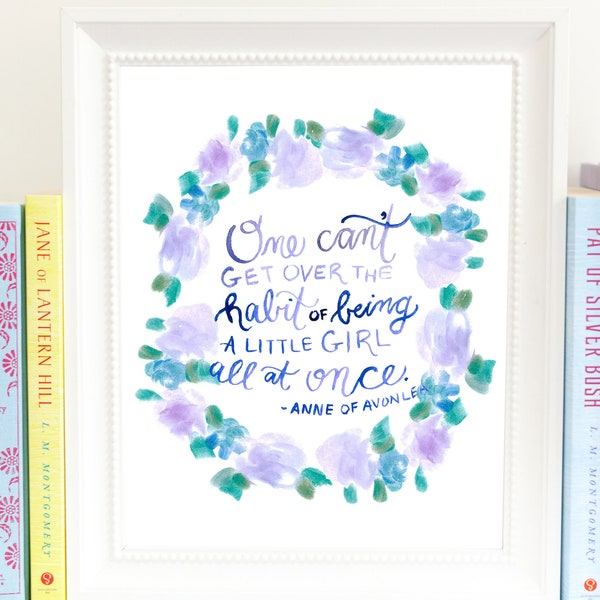 One can't
GET OVER THE
habit OF being
A LITTLE GIRL
all at once.
-ANNE OF AVONLEA
JANE OF LANTERN HILL
L. M. MONTGOMERY
PAT OF SILVER BUSH